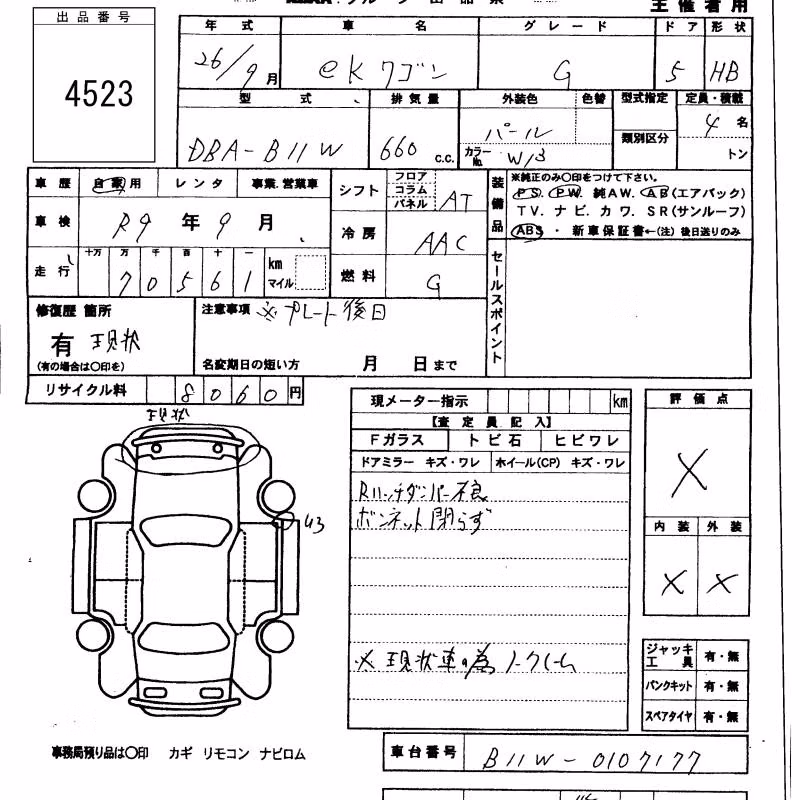 主催者用
出品番号
4523
年式 車名 グレード ドア 形状
26/9月 eKワゴン G 5 HB
型式 排気量 外装色 色替 型式指定 定員・積載
DBA-B11W 660 c.c. パール 類別区分 4名
カラーNo. W13 トン
車歴 自家用 レンタ 事業.営業車
車検 R9年9月
走行 十万 万 千 百 十 一 km マイル
70561
シフト フロア コラム パネル AT
冷房 AAC
燃料 G
装備品 ※純正のみ〇印をつけて下さい。
PS. PW. 純AW. AB(エアバック)
TV. ナビ. カワ. SR(サンルーフ)
ABS ・ 新車保証書←(注) 後日送りのみ
セールスポイント
修復歴 箇所
有 現状
(有の場合は〇印を)
注意事項 ※プレート後日
名変期日の短い方 月 日まで
リサイクル料 8060円
現状
U3
現メーター指示 km
【査定員記入】
Fガラス トビ石 ヒビワレ
ドアミラー キズ・ワレ ホイール(CP) キズ・ワレ
Rハッチダンパー不良
ボンネット閉らず
※現状車の為ノークレーム
評価点
X
内装 外装
X X
ジャッキ工具 有・無
パンクキット 有・無
スペアタイヤ 有・無
事務局預り品は〇印 カギ リモコン ナビロム
車台番号 B11W-0107177